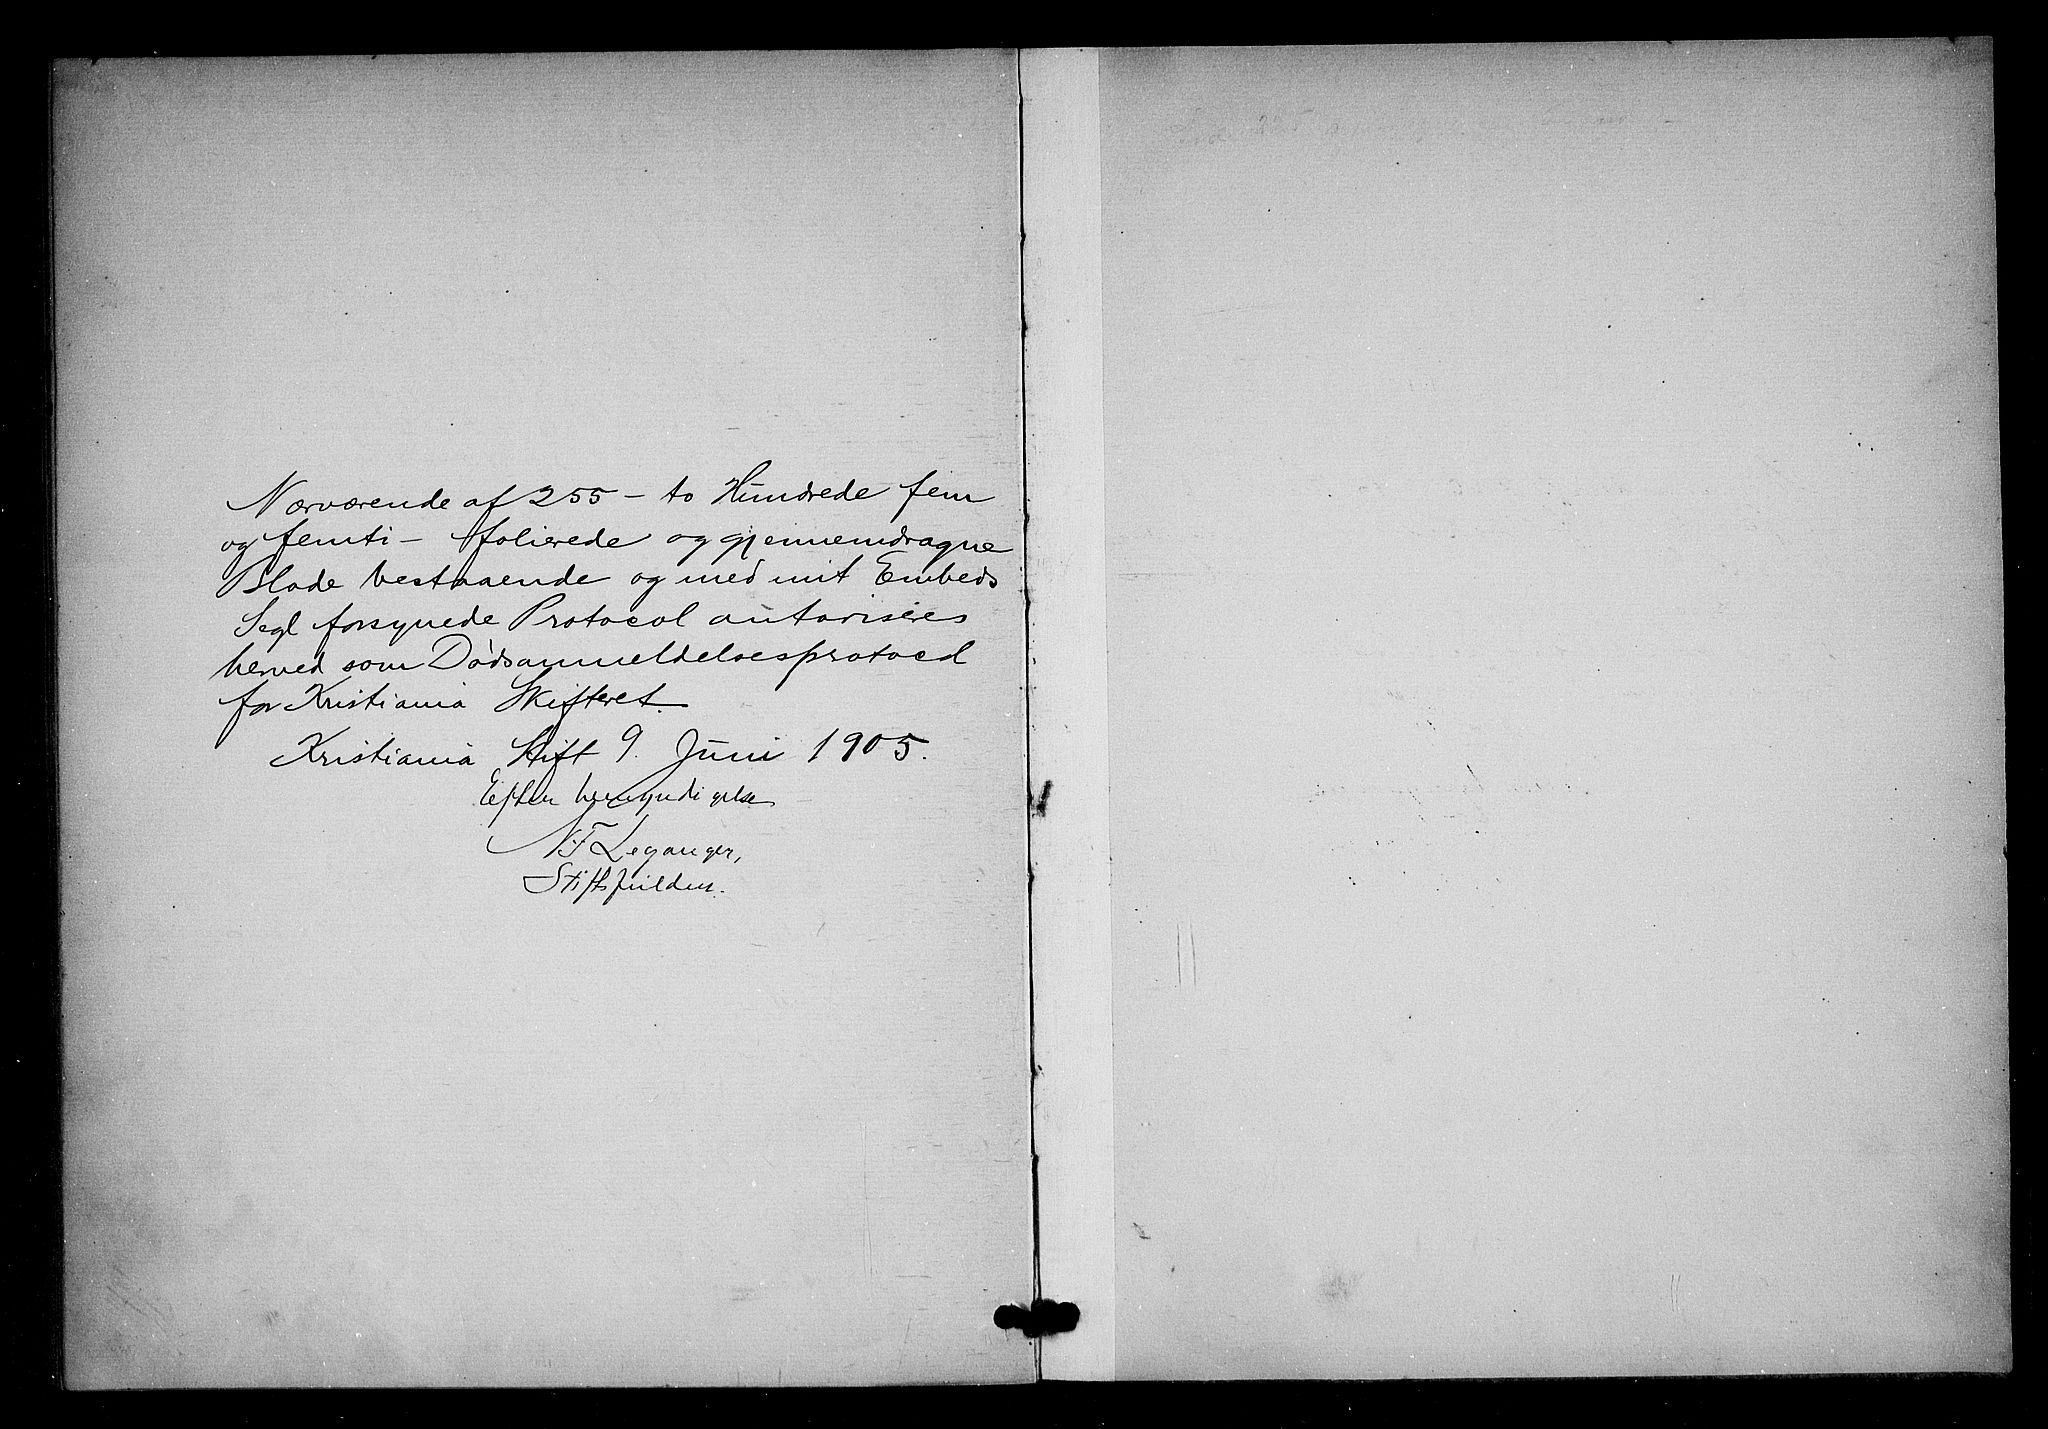 Nærværende af 255 – to Hundrede fem
og femti – folierede og gjennemdragne
Blade bestaaende og med mit Embeds
Segl forsynede Protocol autoriseres
herved som Dødsanmeldelsesprotocol
for Kristiania Skifteret.
Kristiania Stift 9. Juni 1905.
Efter bemyndigelse
N F Leganger,